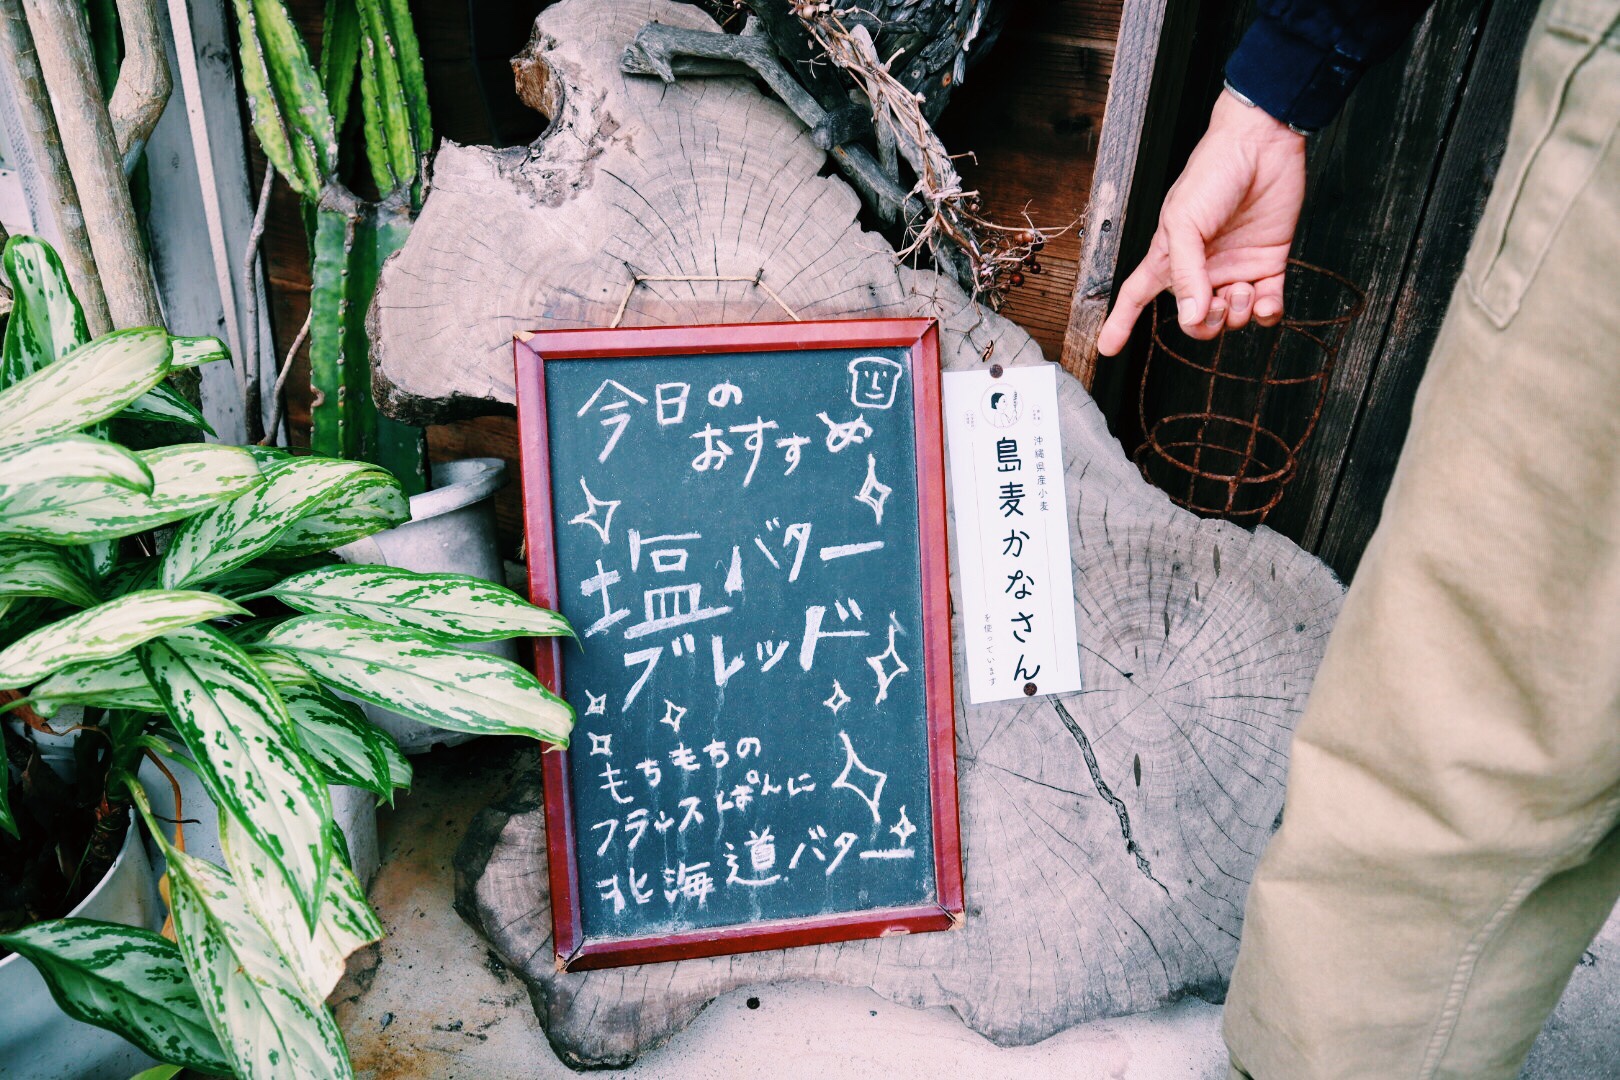 今日の
おすすめ
塩バター
ブレッド
もちもちの
フランスぱんに
北海道バター
沖縄県産小麦
島麦かなさん
を使っています